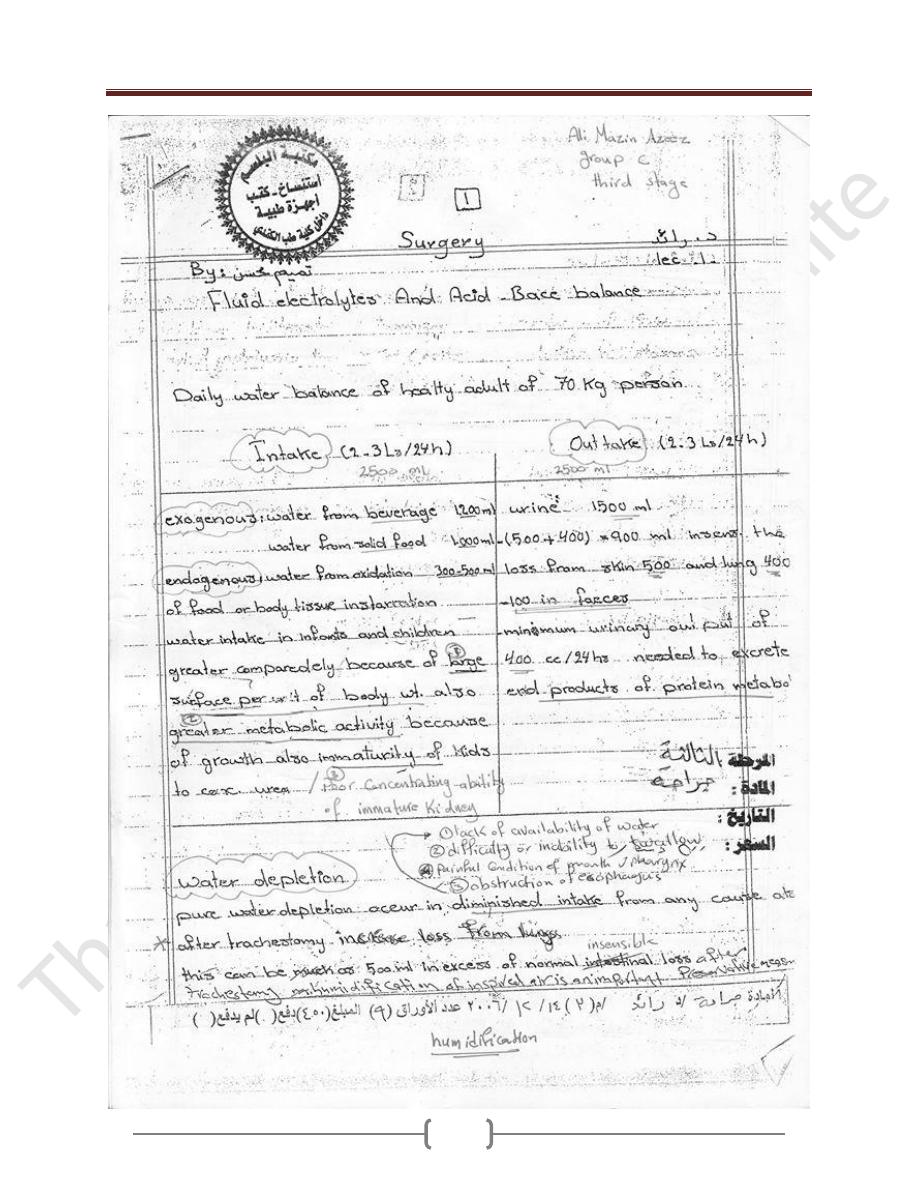 Ali Mazin Azeez
group C
third stage
مكتبة البلسم
أستنساخ - كتب
أجهزة طبية
داخل كلية طب الكندي
1
Surgery
د. رائد
lec.1
By: تميم محسن
Fluid electrolytes And Acid-Bace balance
Daily water balance of healty adult of 70 Kg person
Intake (2-3 Ls/24h)
2500 mL
exogenous: water from beverage 1200ml
water from solid food 1000ml
endogenous: water from oxidation 300-500ml
of food or body tissue in starcation
water intake in infants and children
greater comparedely because of large
surface per unit of body wt. also
greater metabolic activity because
of growth also immaturity of Kids
to urea / poor concentrating ability
of immature Kidney
Out take (2-3 Ls/24h)
2500 ml
urine: 1500 ml
-(500+400) = 900 ml insens. the
loss from skin 500 and lung 400
-100 in faeces
-minimum urinary out put of
400 cc/24hs needed to excrete
end products of protein metabo
المرحلة الثالثة
المادة: جراحة
التاريخ:
السعر:
① lack of availability of water
② difficulty or inability to swallow
painful condition of mouth / pharynx
③ obstruction of esophagus
Water depletion
pure water depletion occur in diminished intake from any cause
* after trachestomy increase loss from lungs
insensible
this can be much as 500 ml in excess of normal intestinal loss after
trachestomy humidification of inspired air is an important
المادة جراحة د/ رائد / م (2) 14/ /2006 عدد الأوراق (9) المبلغ (450) دفع ( ) لم يدفع ( )
humidification